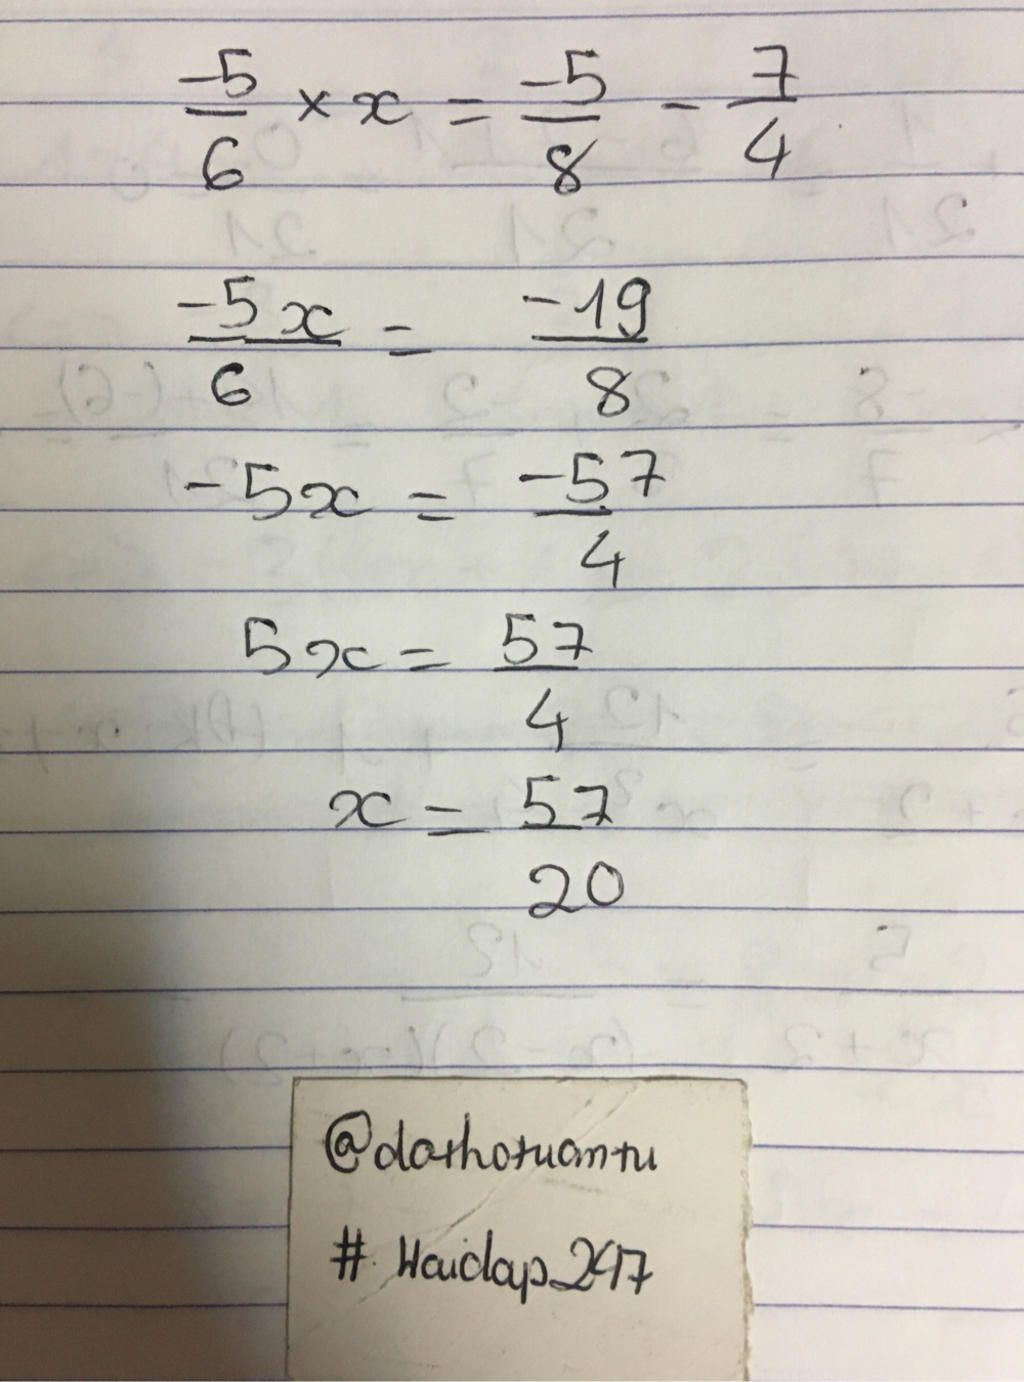 -5/6 × x = -5/8 - 7/4
-5x/6 = -19/8
-5x = -57/4
5x = 57/4
x = 57/20
@dathotuantu
# Haidap247